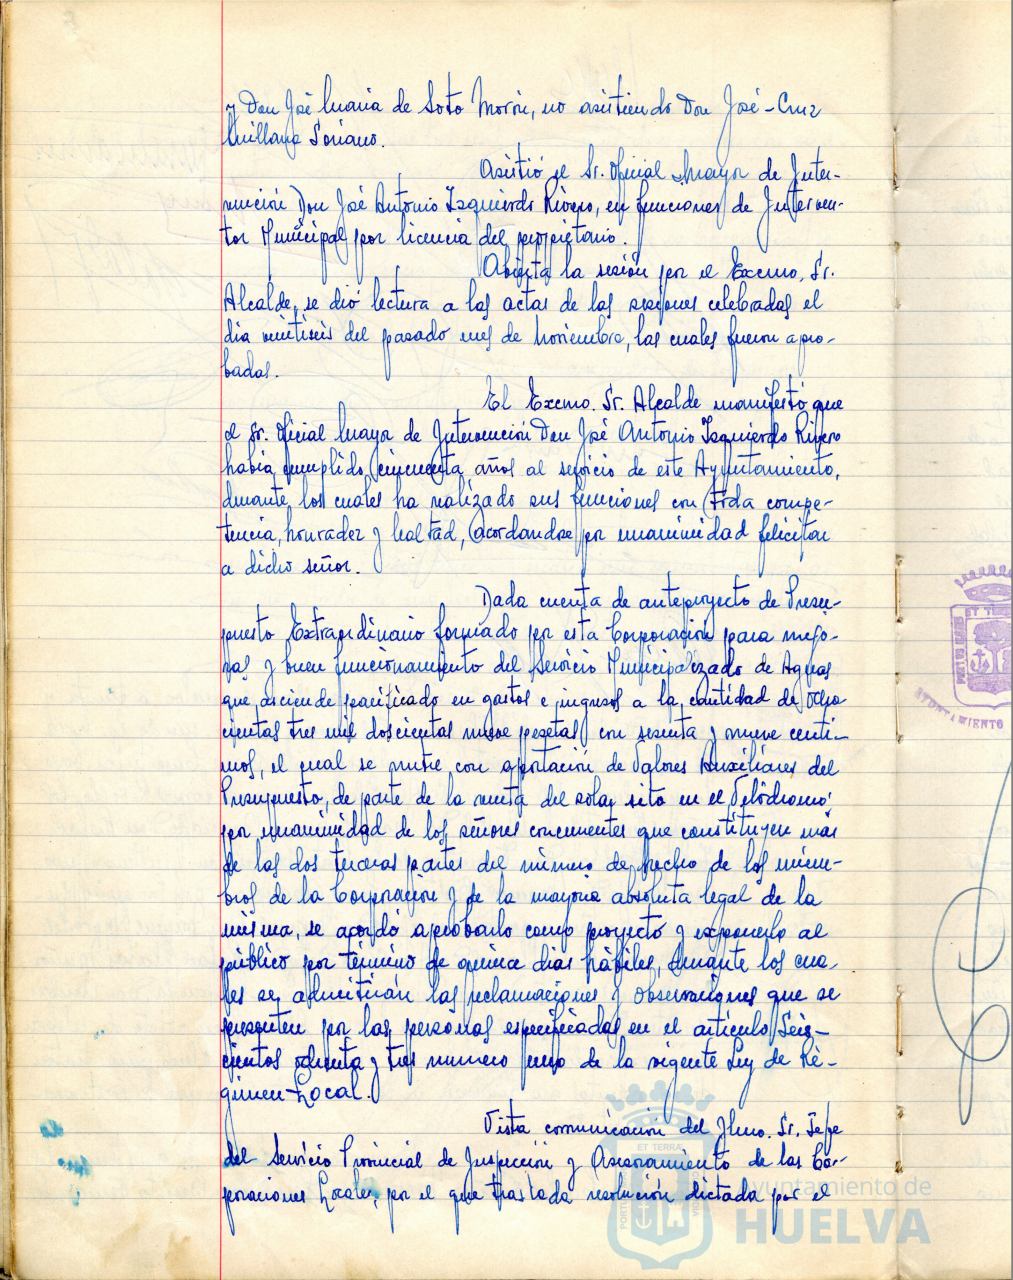 y Don José María de Soto Morón, no asistiendo Don José-Cruz
Millana Soriano.
Asistió el Sr. Oficial Mayor de Inter-
vención Don José Antonio Izquierdo Rivero, en funciones de Interven-
tor Municipal por licencia del propietario.
Abierta la sesión por el Excmo. Sr.
Alcalde, se dió lectura a las actas de las sesiones celebradas el
día veintiseis del pasado mes de noviembre, las cuales fueron apro-
badas.
El Excmo. Sr. Alcalde manifestó que
el Sr. Oficial Mayor de Intervención Don José Antonio Izquierdo Rivero
había cumplido cincuenta años al servicio de este Ayuntamiento,
durante los cuales ha realizado sus funciones con toda compe-
tencia, honradez y lealtad, acordandose por unanimidad felicitar
a dicho señor.
Dada cuenta de anteproyecto de Presu-
puesto Extraordinario formado por esta Corporación para mejo-
ras y buen funcionamiento del Servicio Municipalizado de Aguas
que asciende en gastos e ingresos a la cantidad de ocho
cientas tres mil doscientas nueve pesetas con sesenta y nueve centi-
mos, el cual se nutre con aportación de Valores Auxiliares del
Presupuesto, de parte de la venta del solar sito en el Velódromo;
por unanimidad de los señores concurrentes que constituyen más
de las dos terceras partes del número de hecho de los miem-
bros de la Corporación y de la mayoria absoluta legal de la
misma, se acordó aprobarlo como proyecto y exponerlo al
público por término de quince dias hábiles, durante los cua-
les se admitirán las reclamaciones y observaciones que se
presenten por las personas especificadas en el artículo Seis-
cientos ochenta y tres numero uno de la vigente Ley de Ré-
gimen Local.
Vista comunicación del Ilmo. Sr. Jefe
del Servicio Provincial de Inspección y Asesoramiento de las Cor-
poraciones Locales, por el que traslada resolución dictada por el
ET TERRAE
AYUNTAMIENTO
Ayuntamiento de
HUELVA